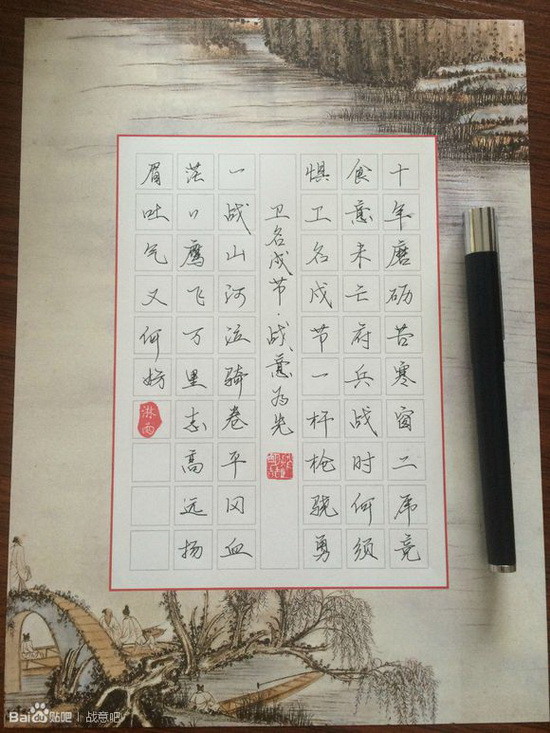 十年磨砺苦寒窗二虎竞
食意未亡府兵战时何须
惧卫名戍节一杆枪骁勇
卫名戍节·战意为先
一战山河泣骑卷平冈血
茫〃鹰飞万里志高远扬
眉吐气又何妨
淋雨
Bai贴吧 | 战意吧